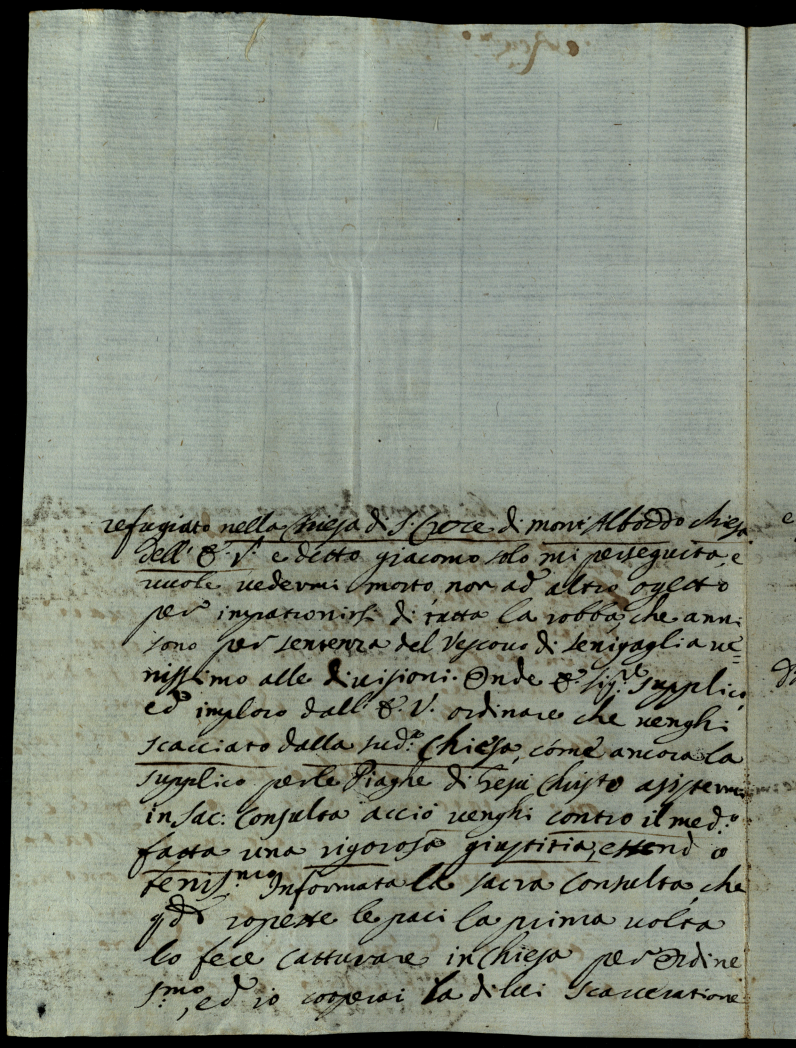 refugiato nella Chiesa di S. Croce di mont'Alboddo chiesa
dell' E. V. e ditto giacomo solo mi perseguita, e
vuole vedermi morto non ad altro ogetto
per impatronirsi di tutta la robba, che anni
sono per sentenza del Vescovo di Senigaglia ve=
nissimo alle divisioni. Onde E. Sig.re supplico,
ed imploro dall' E. V. ordinare che venghi
scacciato dalla sud.a Chiesa, come ancora la
supplico per le Piaghe di Gesù Christo assistermi
in Sac: Consulta acciò venghi contro il med.o
fatta una rigorosa giustitia, essend o
Informata la sacra Consulta, che
roppette le paci la prima volta
lo fece catturare in Chiesa per Ordine
S.mo, ed io cooperai la di lui scarceratione